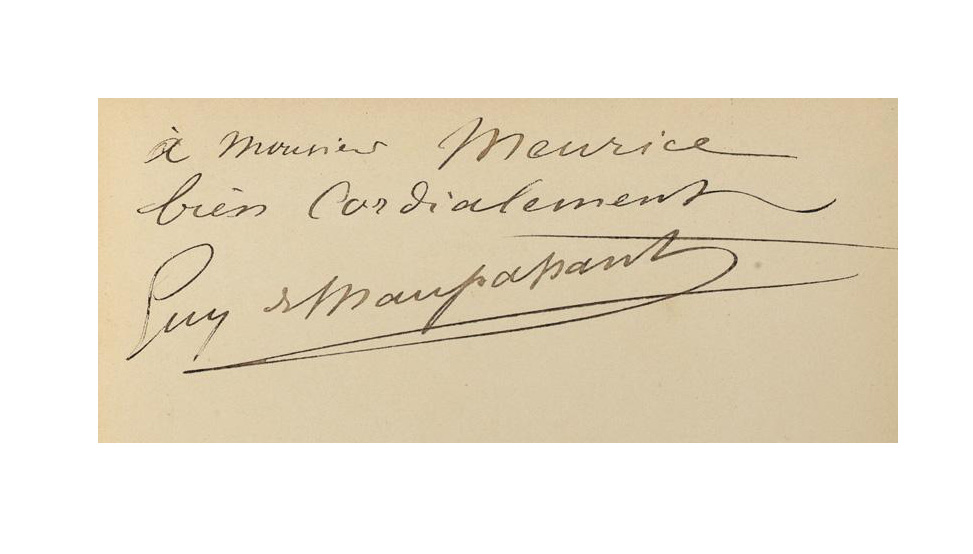 à Monsieur Meurice
bien cordialement
Guy de Maupassant